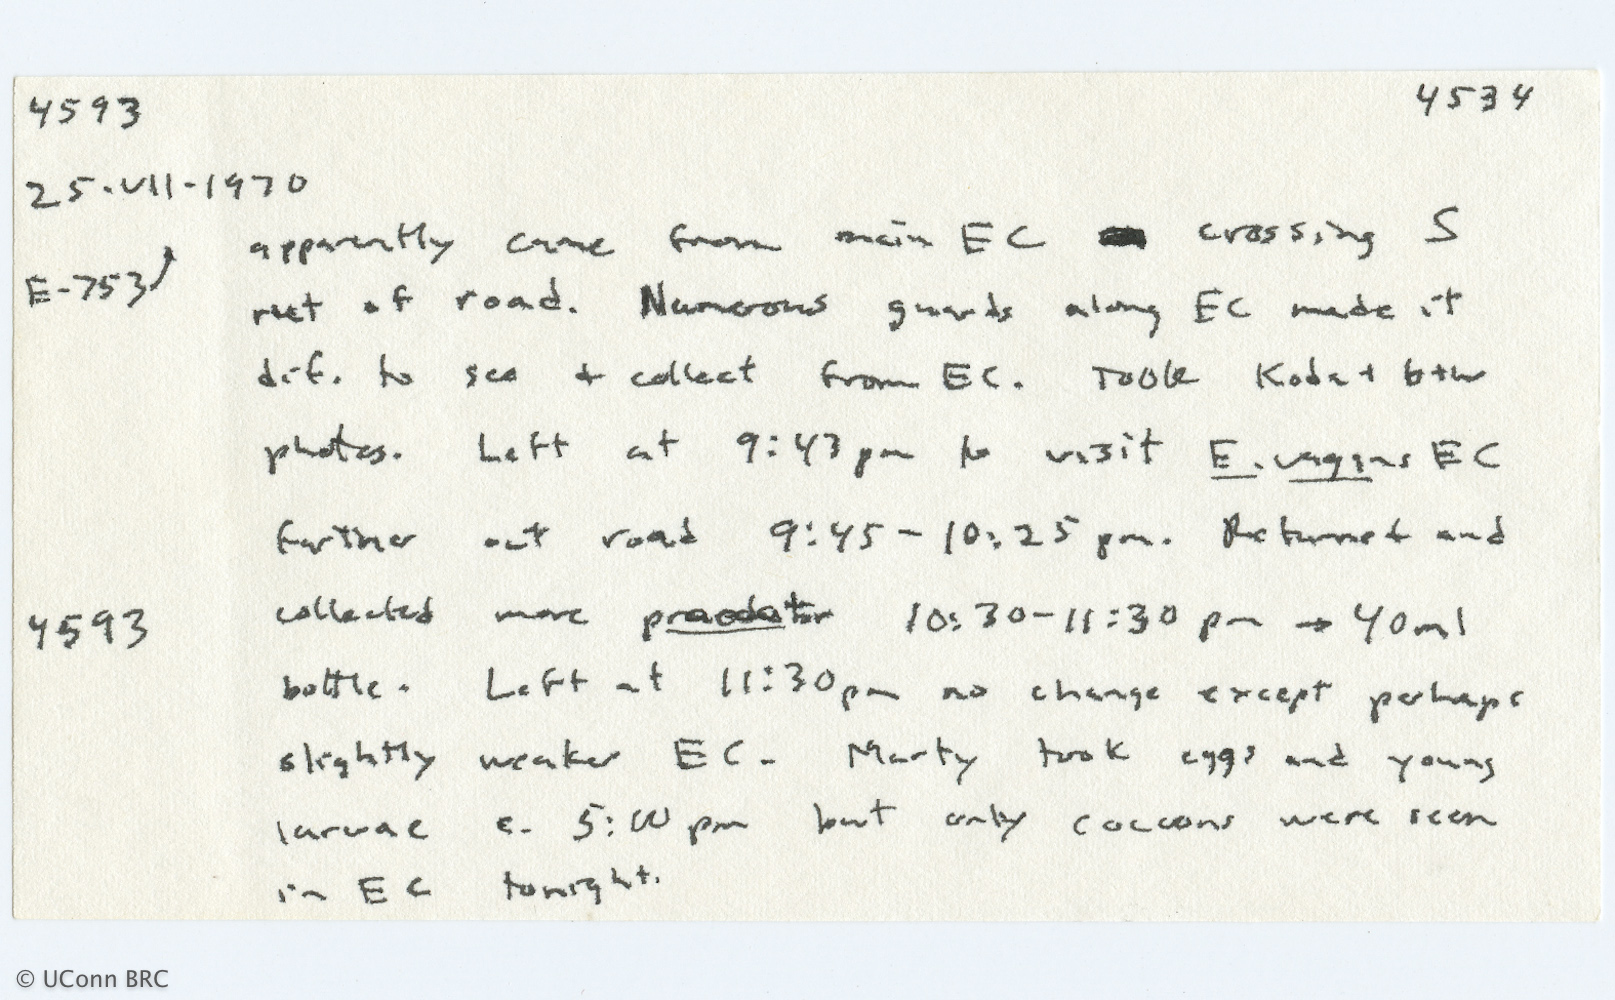 4593
4534
25-VII-1970
apparently came from main EC crossing S
E-753
rut of road. Numerous guards along EC made it
dif. to see + collect from EC. Took Koda + b+w
photos. Left at 9:43 pm to visit E. vagans EC
farther out road 9:45-10:25 pm. Returned and
4593
collected more praedator 10:30-11:30 pm → 40ml
bottle. Left at 11:30pm no change except perhaps
slightly weaker EC. Marty took eggs and young
larvae c. 5:00 pm but only cocoons were seen
in EC tonight.
© UConn BRC